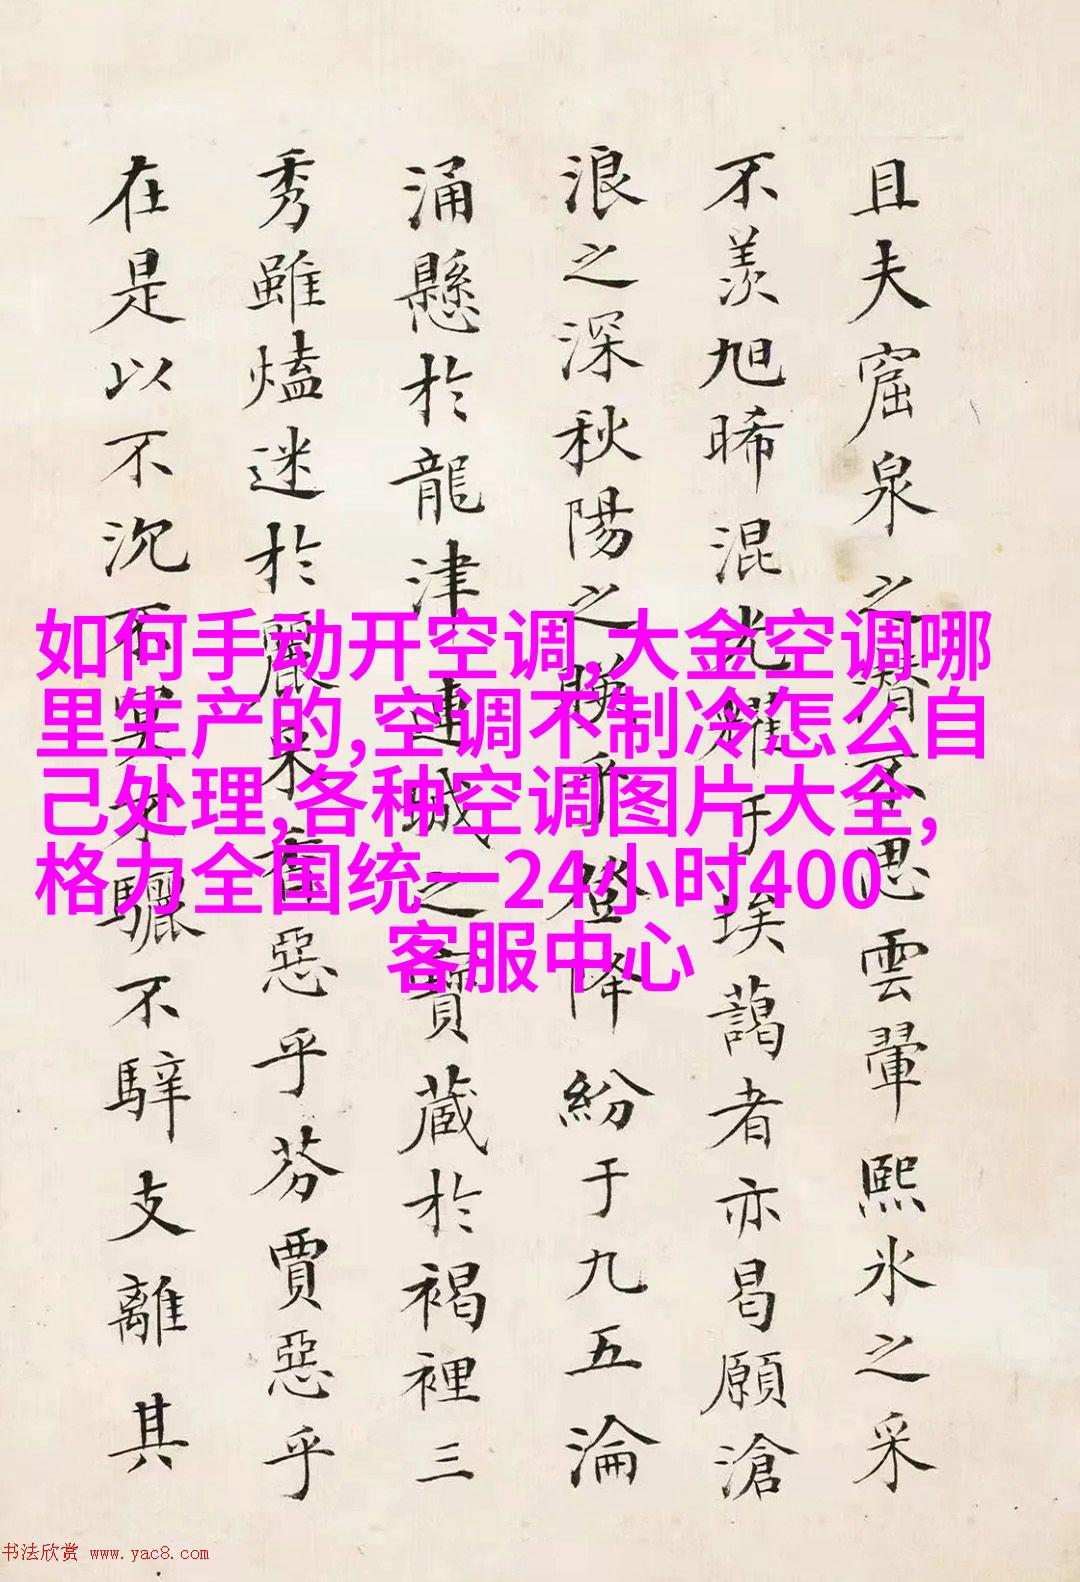 且夫窟泉之潜不思雲翬熙氷之采
不羨旭晞混光耀于埃藹者亦曷願滄
浪之深秋陽之映乎登降紛于九五淪
涌懸於龍津連城之寶蔵於褐裡三
秀雖熆迷於麗采奮惡乎芬賈惡乎
在是以不沉不冥不驪不騂支離其
如何手动开空调,大金空调哪
里生产的,空调不制冷怎么自
己处理,各种空调图片大全,
格力全国统一24小时400
客服中心
书法欣赏 www.yac8.com